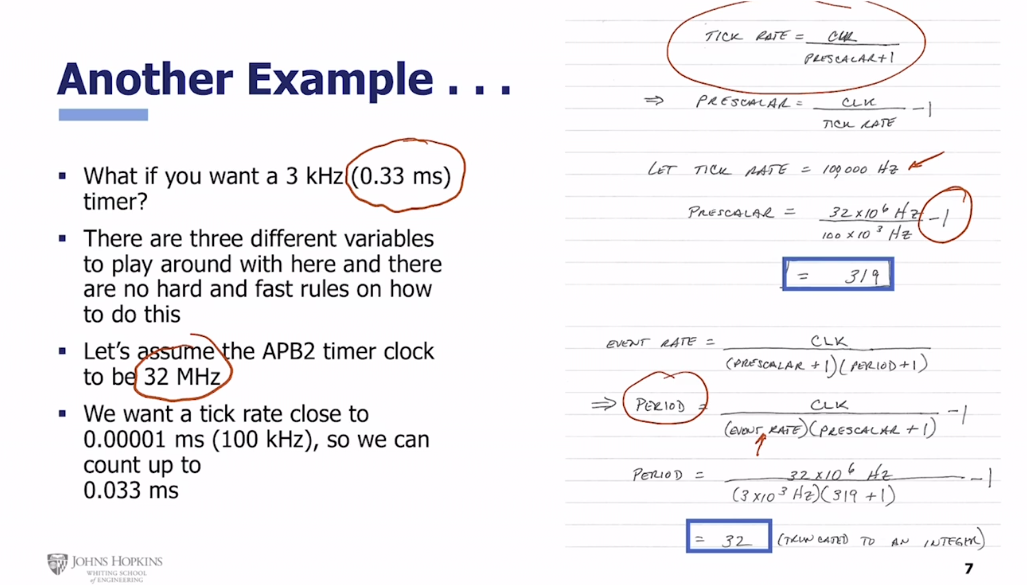 Another Example . . .
▪ What if you want a 3 kHz (0.33 ms)
timer?
▪ There are three different variables
to play around with here and there
are no hard and fast rules on how
to do this
▪ Let's assume the APB2 timer clock
to be 32 MHz
▪ We want a tick rate close to
0.00001 ms (100 kHz), so we can
count up to
0.033 ms
TICK RATE = CLK / PRESCALAR+1
⇒ PRESCALAR = CLK / TICK RATE - 1
LET TICK RATE = 100,000 HZ
PRESCALAR = 32 x 10^6 HZ / 100 x 10^3 HZ - 1
= 319
EVENT RATE = CLK / (PRESCALAR + 1)(PERIOD + 1)
⇒ PERIOD = CLK / (EVENT RATE)(PRESCALAR + 1) - 1
PERIOD = 32 x 10^6 HZ / (3 x 10^3 HZ)(319 + 1) - 1
= 32 (TRUNCATED TO AN INTEGER)
JOHNS HOPKINS
WHITING SCHOOL
of ENGINEERING
7